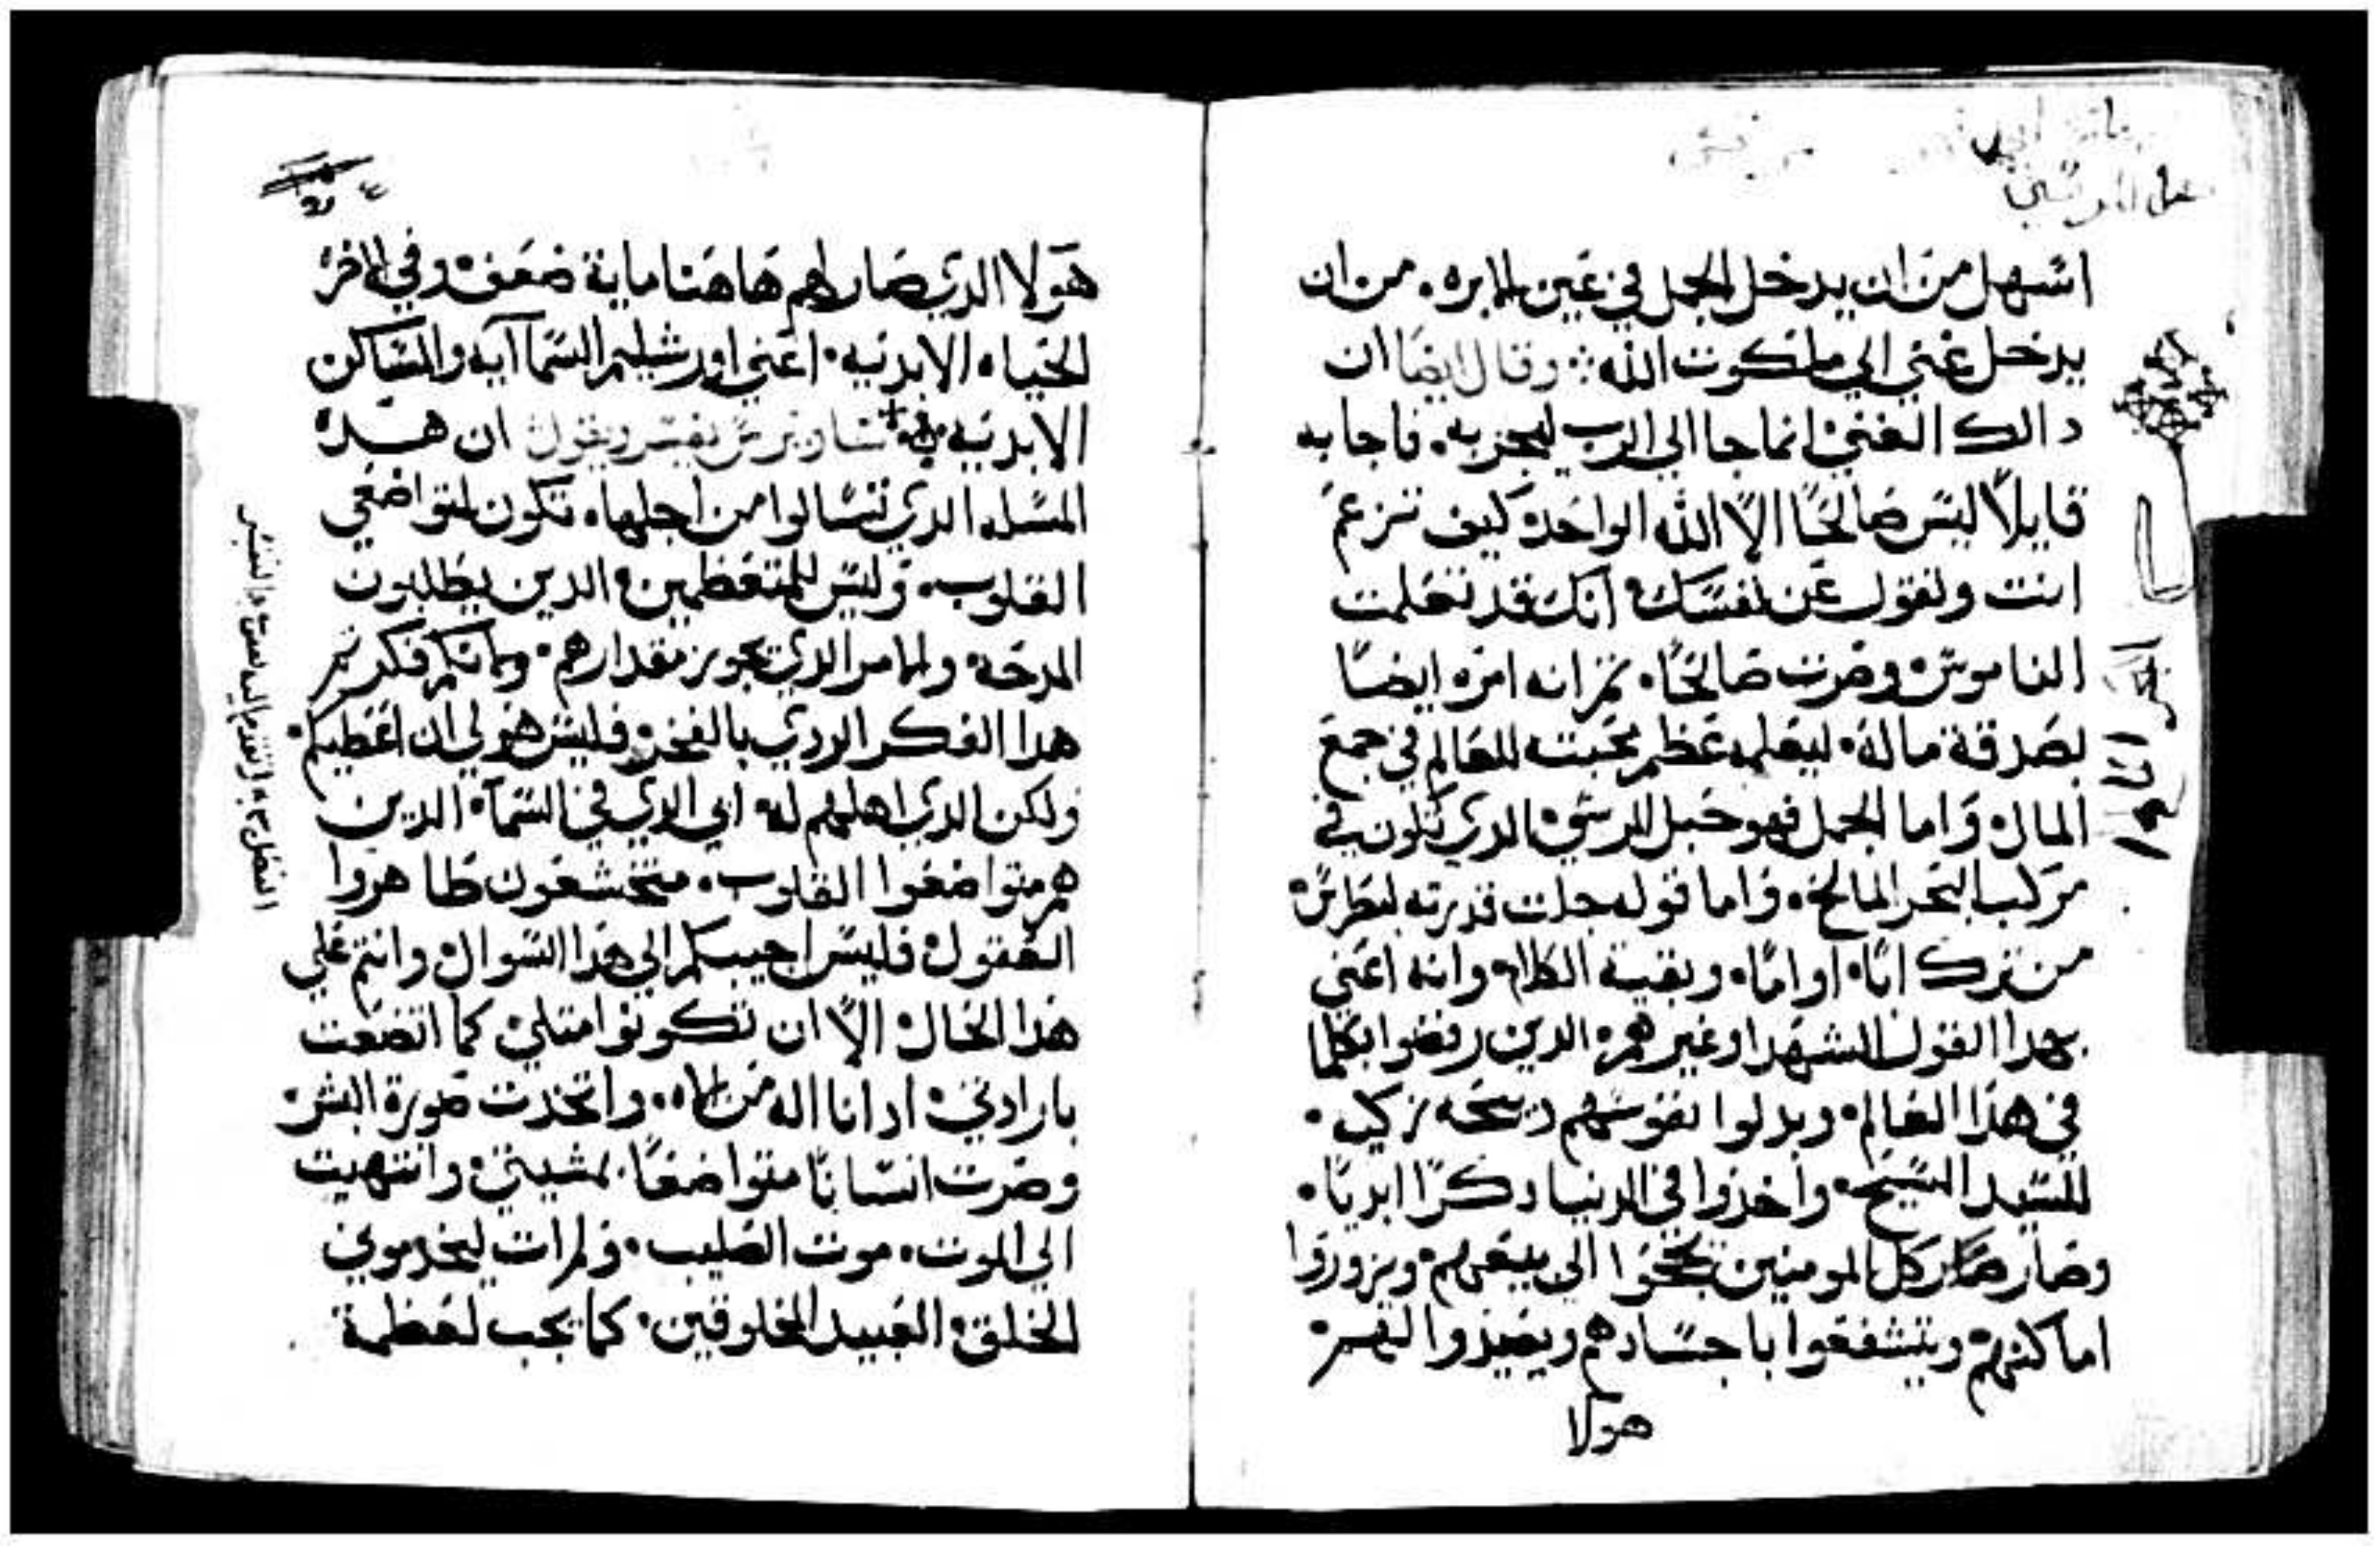 اسهل من ان يدخل الجمل في عين الابره. من ان
يدخل غني الي ملكوت الله وقال ايضا ان
دالك الغني انما جا الي الرب ليجربه. فاجابه
قايلاً ليس صالحًا الاّ الله الواحد كيف تزعم
انت وتقول عن نفسك انك قد تعلمت
الناموس وصرت صالحًا. ثم انه امره ايضًا
بصدقة ماله. ليعلمه عظم محبته للعالم في جمع
المال واما الجمل فهو حبل المرسي الدي تكون في
مركب البحر المالح. واما قوله جلت قدرته لبطرس
من ترك ابًا. او امًا. وبقية الكلام وانه اعني
بهدا القول الشهدا وغيرهم. الدين رفضوا بكلما
في هدا العالم. وبدلوا نفوسهم دبيحه زكيه.
للسيد المسيح. واخذوا في الدنيا دكرًا ابديًا.
وصار كل المومنين يحجوا الي بيعهم. ويزوروا
اماكنهم ويتشفعوا باجسادهم ويعيدوا لهم
هولا
هولا الدي صار لهم هاهنا ماية ضعف. وفي الاخره
الحياه الابديه. اعني اورشليم السماآيه والمساكن
الابديه ساويرس يفسر ويقول ان هده
المسله الدي تسالوا من اجلها. تكون لمتواضعي
القلوب. وليس للمتعظمين الدين يطلبون
المدحه والامر الدي يجوز مقدارهم. وانكم فكرتم
هدا الفكر الردي بالفخر فليس هو لي ان اعطيكم
ولكن الدي اهلهم له ابي الدي في السمآ. الدين
هم متواضعوا القلوب. متخشعون طاهروا
العقول فليس اجيبكم الي هدا السوال وانتم علي
هدا الحال الاّ ان تكونوا متلي كما اتضعت
بارادتي اد انا اله من اله. واتخدت صورة البشر
وصرت انسانًا متواضعًا بمشيتي وانتهيت
الي الموت. موت الصليب. ولم ات ليخدموني
الخلق العبيد المخلوقين. كما يجب لعظمة